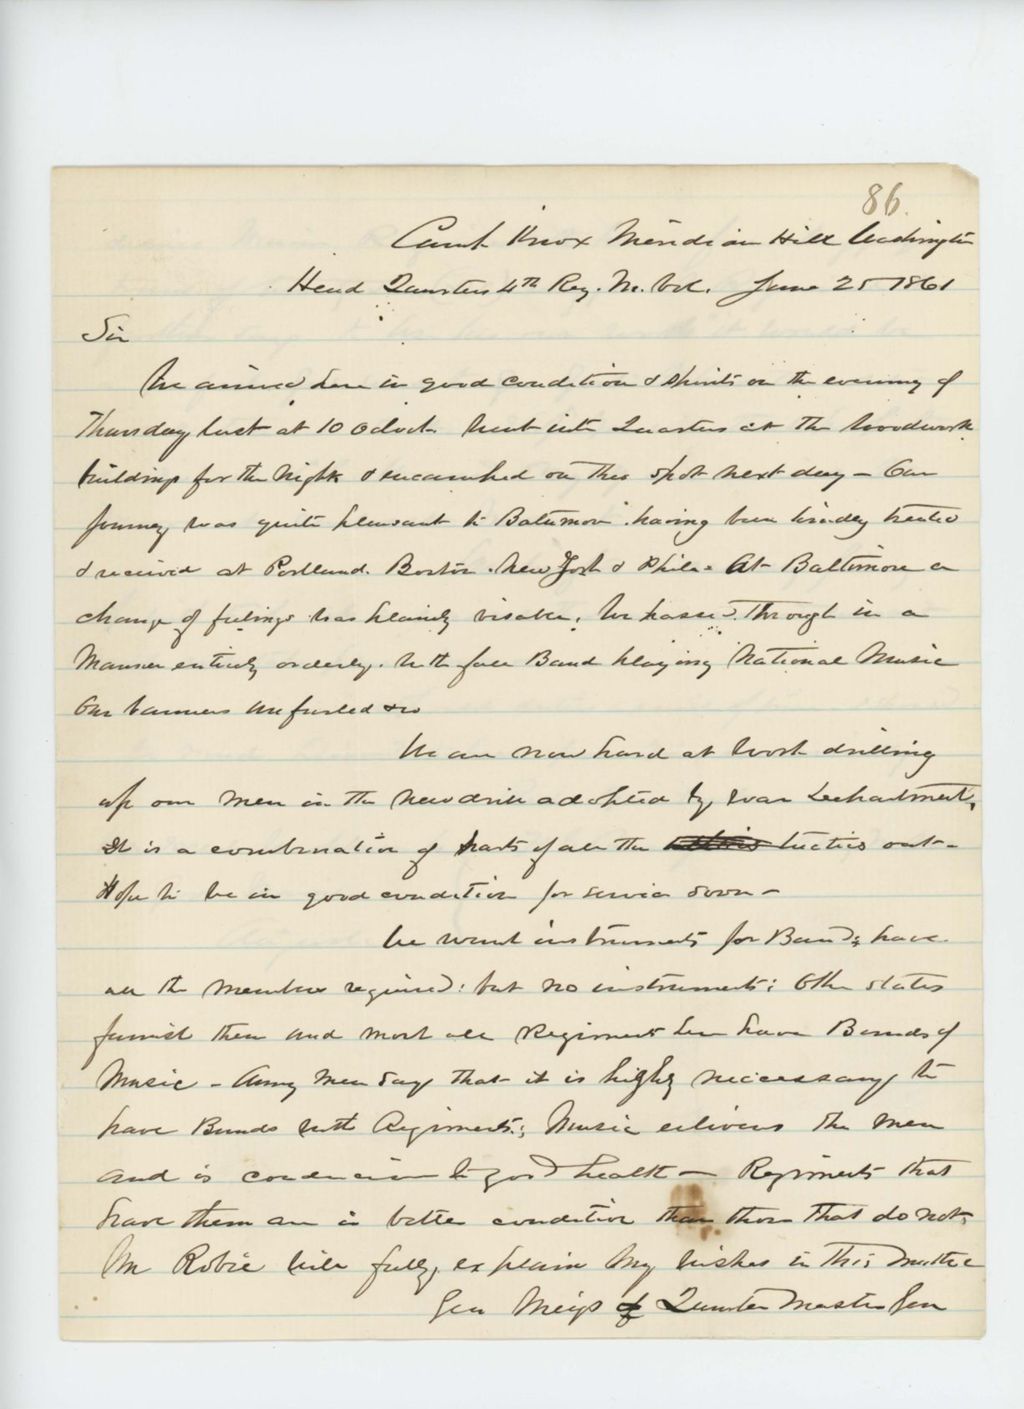 86.
Camp Knox Meridian Hill Washington
Head Quarters 4th Reg. M. Vol. June 25 1861
Sir
We arrived here in good condition & spirits on the evening of
Thursday last at 10 oclock went into Quarters at the Woodward
buildings for the Night & encamped on this spot next day - Our
journey was quite pleasant to Baltimore having been kindly treated
& received at Portland. Boston. New York & Phila. At Baltimore a
change of feelings was plainly visable, We passed through in a
Manner entirely orderly. With full Band playing National Music
Our banners unfurled &c
We are now hard at work drilling
up our men in the new drill adopted by War Department,
It is a combination of parts of all the tactics out -
Hope to be in good condition for service soon -
We want instruments for Band; have
all the members required: but no instruments; Other states
furnish them and most all Regiments here have Bands of
Music - Army men say that it is highly neccessary to
have Bands with Regiments; Music enlivens the men
and is conducive to good health - Regiments that
have them are in better condition than those that do not,
Mr Robie will fully explain my wishes in this matter
Gen Meigs Quarter Master Gen